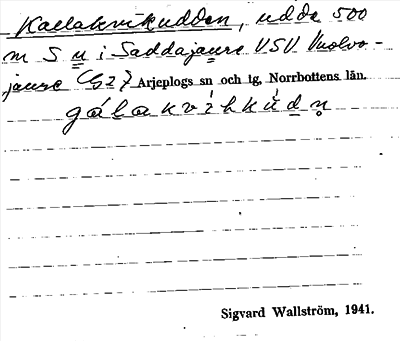 Kallakvikudden, udde 500
m S u i Saddajaure VSV Vuolvo-
jaure (G2) Arjeplogs sn och tg, Norrbottens län.
gálakvìkkùdn̥
Sigvard Wallström, 1941.